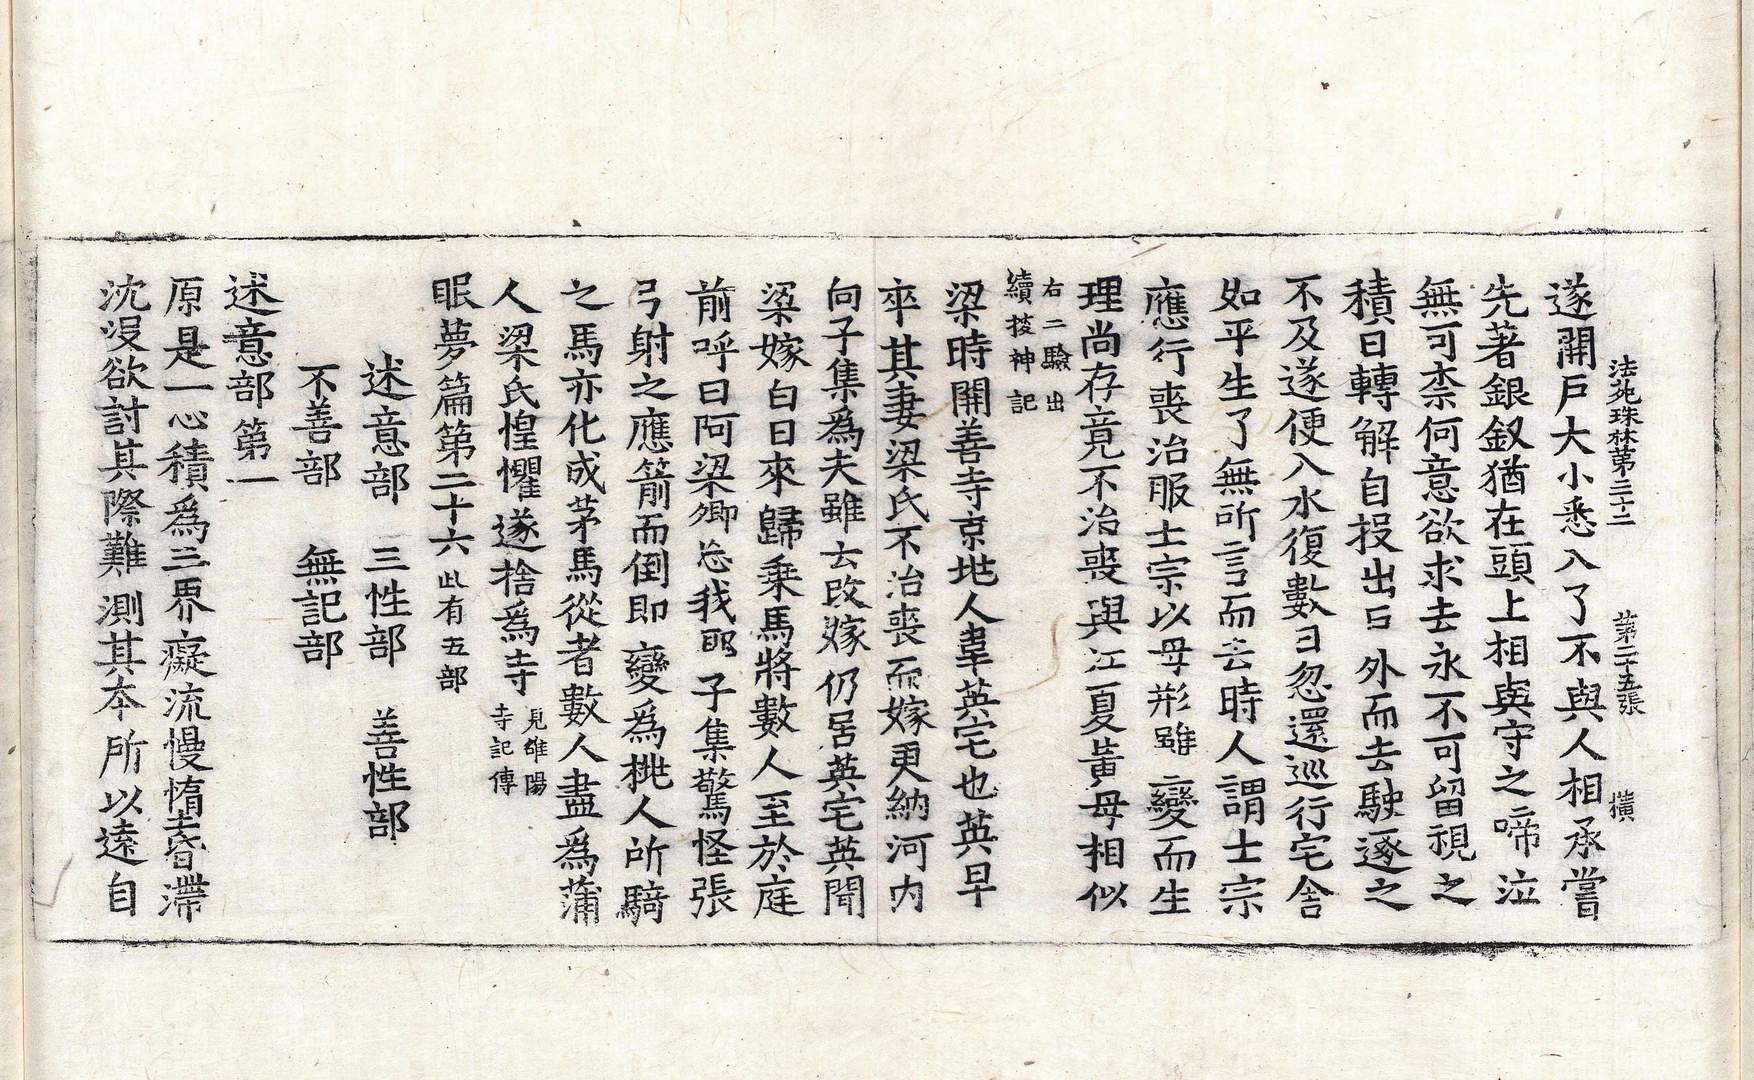 法苑珠林第三十二 第二十五張 橫
遂開戶大小悉入了不與人相承嘗
先著銀釵猶在頭上相與守之啼泣
無可柰何意欲求去永不可留視之
積日轉解自投出戶外而去駛逐之
不及遂便入水復數日忽還巡行宅舍
如平生了無所言而去時人謂士宗
應行喪治服士宗以母形雖變而生
理尚存竟不治喪與江夏黃母相似
右二驗出
續搜神記
梁時開善寺京地人韋英宅也英早
卒其妻梁氏不治喪而嫁更納河內
向子集爲夫雖云改嫁仍居英宅英聞
梁嫁白日來歸乗馬將數人至於庭
前呼曰阿梁卿忘我耶子集驚怪張
弓射之應箭而倒即變爲桃人所騎
之馬亦化成茅馬從者數人盡爲蒲
人梁氏惶懼遂捨爲寺 見雒陽
寺記傳
眠夢篇第二十六 此有五部
述意部 三性部 善性部
不善部 無記部
述意部第一
原是一心積爲三界癡流慢惰昬滯
沈沒欲討其際難測其本所以遠自